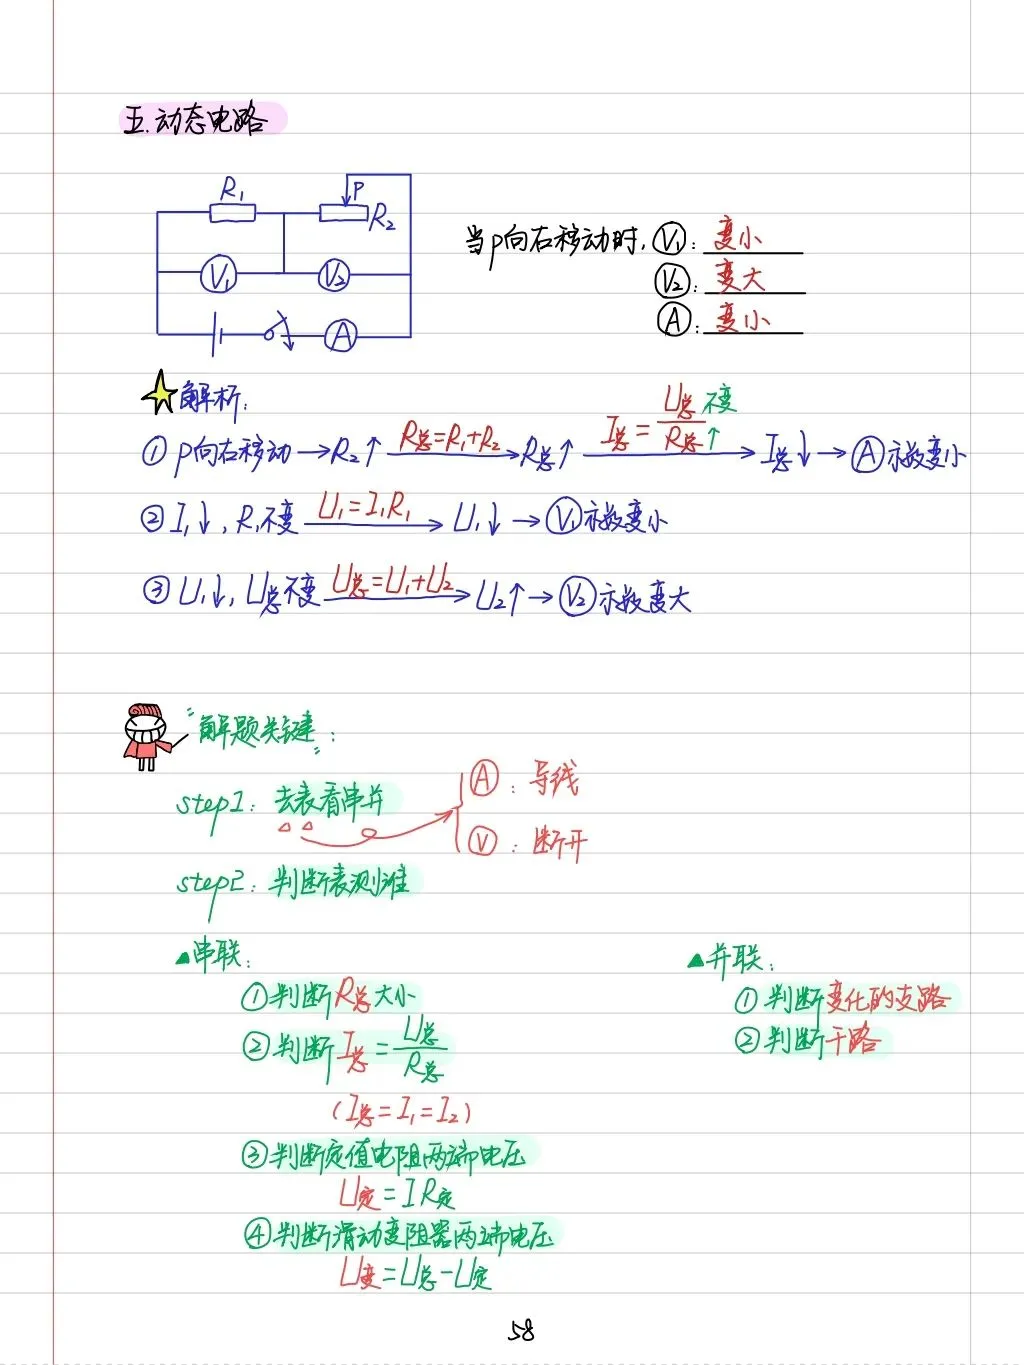 五.动态电路
R₁
P
R₂
V₁
V₂
A
当P向右移动时, Ⓥ₁: 变小
Ⓥ₂: 变大
Ⓐ: 变小
解析:
① P向右移动→R₂↑ R总=R₁+R₂ → R总↑ I总=U总不变/R总↑ → I总↓→Ⓐ示数变小
② I₁↓, R₁不变 U₁=I₁R₁ → U₁↓→Ⓥ₁示数变小
③ U₁↓, U总不变 U总=U₁+U₂ → U₂↑→Ⓥ₂示数变大
"解题关键":
step1: 去表看串并
Ⓐ: 导线
Ⓥ: 断开
step2: 判断表测谁
▲串联:
①判断R总大小
②判断I总=U总/R总
(I总=I₁=I₂)
③判断定值电阻两端电压
U定=IR定
④判断滑动变阻器两端电压
U变=U总-U定
▲并联:
① 判断变化的支路
② 判断干路
58